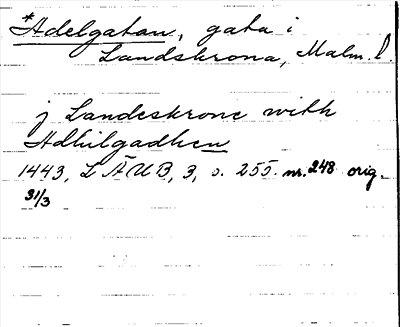 *Adelgatan, gata i
Landskrona, Malm. l.
j Landeskrone with
Adhilgadhen
1443, L Ä U B, 3, s. 255. nr. 248 orig.
31/3